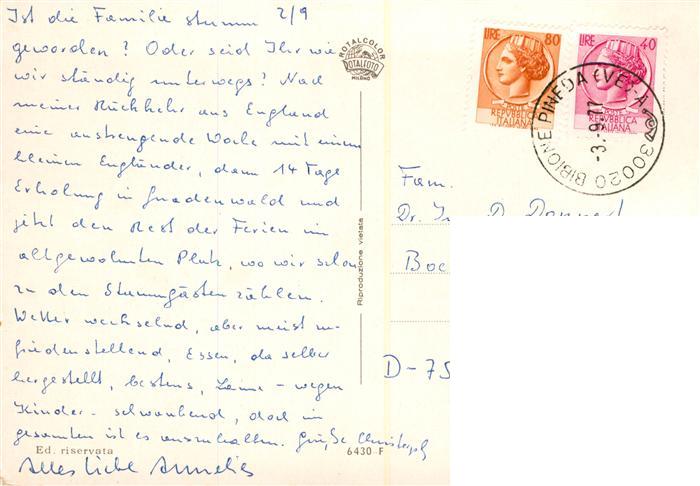 Ist die Familie stumm 2/9
geworden? Oder seid Ihr wie
wir ständig unterwegs? Nach
meiner Rückkehr aus England
eine anstrengende Woche mit einem
kleinen Engländer, dann 14 Tage
Erholung in Gnadenwald und
jetzt den Rest der Ferien im
altgewohnten Platz, wo wir schon
zu den Stammgästen zählen.
Wetter wechselnd, aber meist zu-
friedenstellend, Essen, da selber
hergestellt, bestens, Laune - wegen
Kinder - schwankend, doch im
gesamten ist es auszuhalten. Grüße Christoph
Ed. riservata 6430-F
Alles Liebe Annelies
ROTALCOLOR
ROTALFOTO
MILANO
Riproduzione vietata
LIRE 80
POSTE
REPVBBLICA
ITALIANA
LIRE 40
REPVBBLICA
ITALIANA
30020 BIBIONE PINEDA (VE)-A
-3.-9.77
Fam.
Dr.
D-75